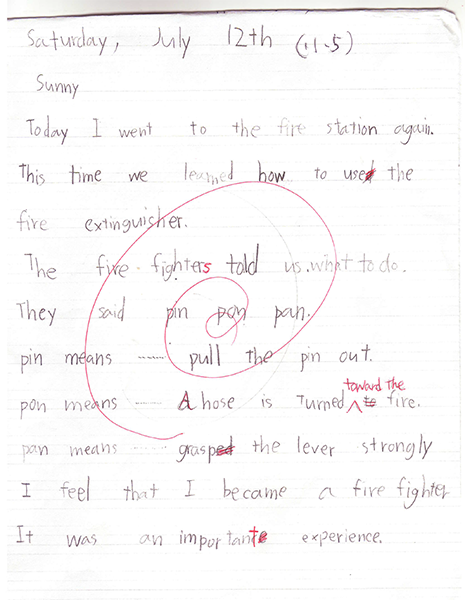 Saturday, July 12th (11-5)
Sunny
Today I went to the fire station again.
This time we learned how to use the
fire extinguicher.
The fire fighters told us what to do.
They said pin pon pan.
pin means ...... pull the pin out.
pon means ...... A hose is Turned toward the fire.
pan means ...... grasp the lever strongly
I feel that I became a fire fighter
It was an important experience.